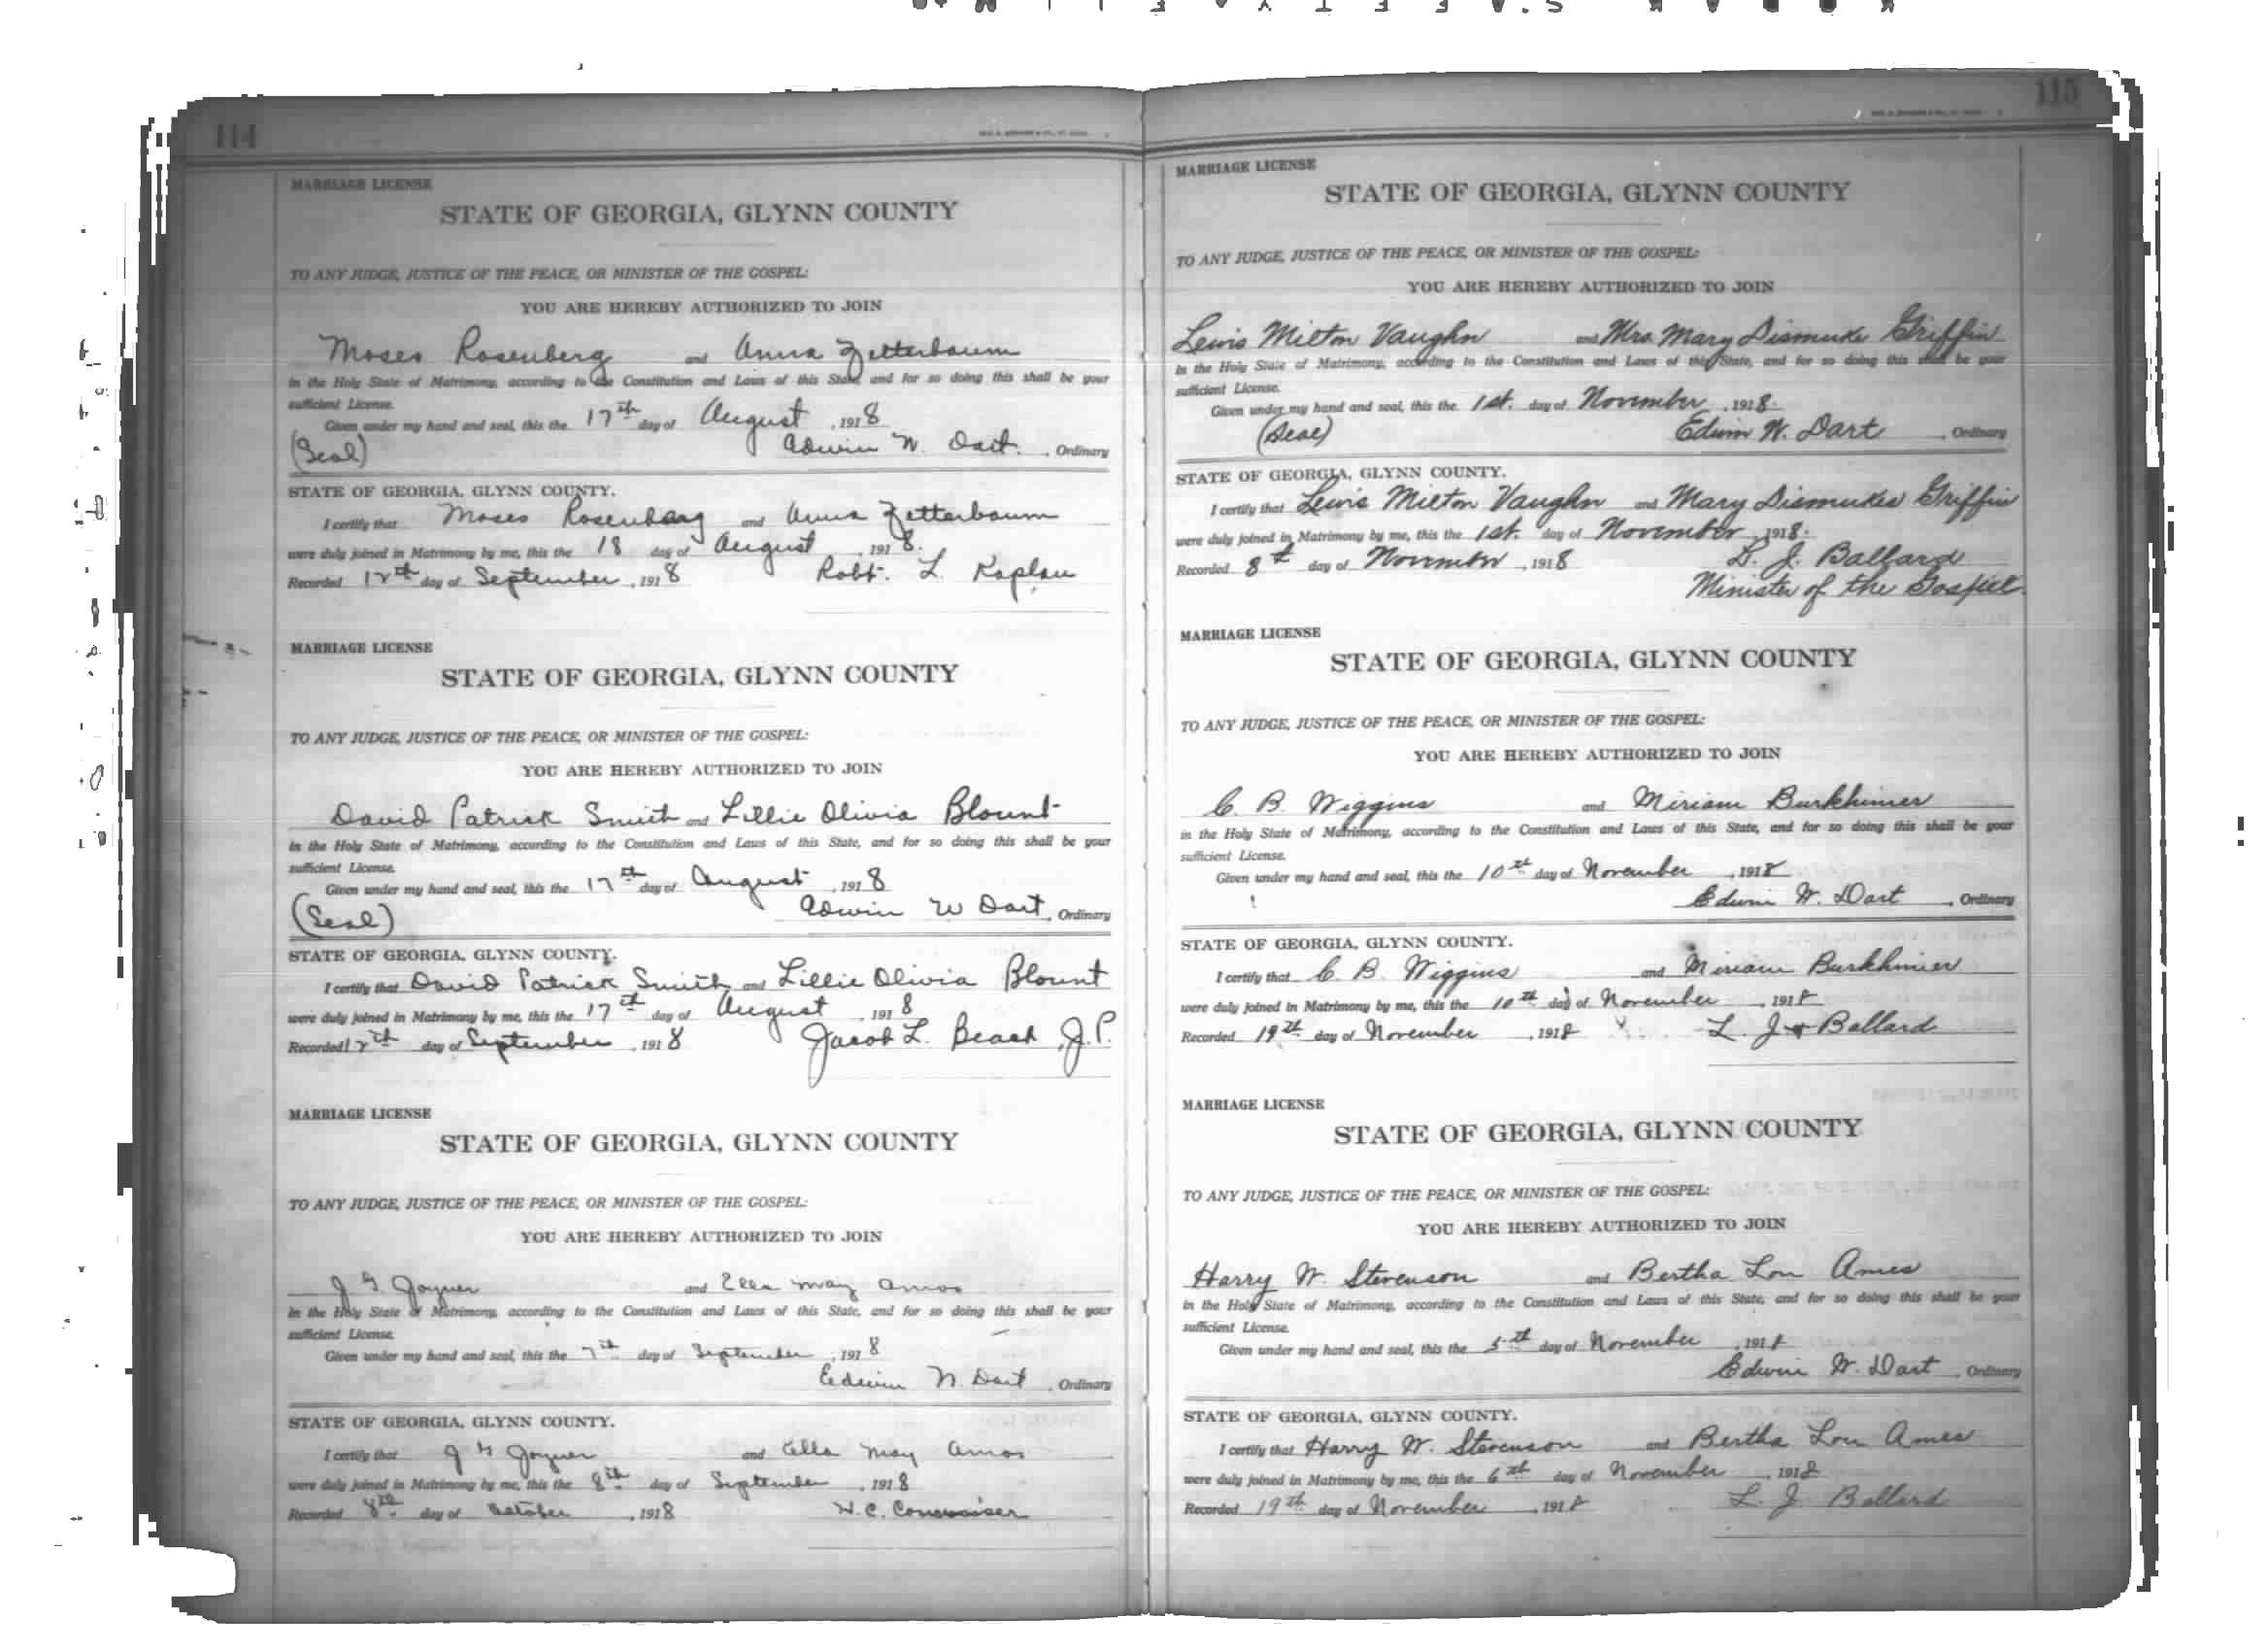 114
MARRIAGE LICENSE
STATE OF GEORGIA, GLYNN COUNTY
TO ANY JUDGE, JUSTICE OF THE PEACE, OR MINISTER OF THE GOSPEL:
YOU ARE HEREBY AUTHORIZED TO JOIN
Moses Rosenberg and Anna Zetterbaum
in the Holy State of Matrimony, according to the Constitution and Laws of this State, and for so doing this shall be your
sufficient License.
Given under my hand and seal, this the 17th day of August, 1918
(Seal) Edwin W. Dart. , Ordinary
STATE OF GEORGIA, GLYNN COUNTY.
I certify that Moses Rosenberg and Anna Zetterbaum
were duly joined in Matrimony by me, this the 18 day of August, 1918.
Recorded 12th day of September, 1918 Robt. L. Kaplan
MARRIAGE LICENSE
STATE OF GEORGIA, GLYNN COUNTY
TO ANY JUDGE, JUSTICE OF THE PEACE, OR MINISTER OF THE GOSPEL:
YOU ARE HEREBY AUTHORIZED TO JOIN
David Patrick Smith and Lillie Olivia Blount
in the Holy State of Matrimony, according to the Constitution and Laws of this State, and for so doing this shall be your
sufficient License.
Given under my hand and seal, this the 17th day of August, 1918
(Seal) Edwin W Dart, Ordinary
STATE OF GEORGIA, GLYNN COUNTY.
I certify that David Patrick Smith and Lillie Olivia Blount
were duly joined in Matrimony by me, this the 17th day of August, 1918
Recorded 12th day of September, 1918 Jacob L. Beach, J.P.
MARRIAGE LICENSE
STATE OF GEORGIA, GLYNN COUNTY
TO ANY JUDGE, JUSTICE OF THE PEACE, OR MINISTER OF THE GOSPEL:
YOU ARE HEREBY AUTHORIZED TO JOIN
J G Joyner and Ella May Amos
in the Holy State of Matrimony, according to the Constitution and Laws of this State, and for so doing this shall be your
sufficient License.
Given under my hand and seal, this the 7th day of September, 1918
Edwin W. Dart, Ordinary
STATE OF GEORGIA, GLYNN COUNTY.
I certify that J G Joyner and Ella May Amos
were duly joined in Matrimony by me, this the 8th day of September, 1918
Recorded 8th day of October, 1918 W. C.
115
MARRIAGE LICENSE
STATE OF GEORGIA, GLYNN COUNTY
TO ANY JUDGE, JUSTICE OF THE PEACE, OR MINISTER OF THE GOSPEL:
YOU ARE HEREBY AUTHORIZED TO JOIN
Lewis Milton Vaughn and Mrs. Mary Dismuke Griffin
in the Holy State of Matrimony, according to the Constitution and Laws of this State, and for so doing this shall be your
sufficient License.
Given under my hand and seal, this the 1st. day of November, 1918.
(Seal) Edwin W. Dart, Ordinary
STATE OF GEORGIA, GLYNN COUNTY.
I certify that Lewis Milton Vaughn and Mary Dismukes Griffin
were duly joined in Matrimony by me, this the 1st. day of November, 1918.
Recorded 8th day of November, 1918 L. J. Ballard
Minister of the Gospel.
MARRIAGE LICENSE
STATE OF GEORGIA, GLYNN COUNTY
TO ANY JUDGE, JUSTICE OF THE PEACE, OR MINISTER OF THE GOSPEL:
YOU ARE HEREBY AUTHORIZED TO JOIN
C. B. Wiggins and Miriam Burkhimer
in the Holy State of Matrimony, according to the Constitution and Laws of this State, and for so doing this shall be your
sufficient License.
Given under my hand and seal, this the 10th day of November, 1918
Edwin W. Dart, Ordinary
STATE OF GEORGIA, GLYNN COUNTY.
I certify that C. B. Wiggins and Miriam Burkhimer
were duly joined in Matrimony by me, this the 10th day of November, 1918
Recorded 19th day of November, 1918 L. J. Ballard
MARRIAGE LICENSE
STATE OF GEORGIA, GLYNN COUNTY
TO ANY JUDGE, JUSTICE OF THE PEACE, OR MINISTER OF THE GOSPEL:
YOU ARE HEREBY AUTHORIZED TO JOIN
Harry W. Stevenson and Bertha Lou Ames
in the Holy State of Matrimony, according to the Constitution and Laws of this State, and for so doing this shall be your
sufficient License.
Given under my hand and seal, this the 5th day of November, 1918
Edwin W. Dart, Ordinary
STATE OF GEORGIA, GLYNN COUNTY.
I certify that Harry W. Stevenson and Bertha Lou Ames
were duly joined in Matrimony by me, this the 6th day of November, 1918
Recorded 19th day of November, 1918 L. J. Ballard